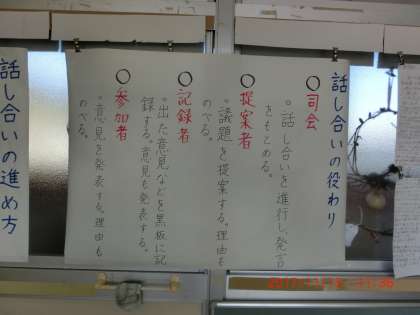 話し合いの役わり
○司会
・話し合いを進行し、発言
をもとめる。
○提案者
・議題を提案する。理由も
のべる。
○記録者
・出た意見などを黒板に記
録する。意見も発表する。
○参加者
・意見を発表する。理由も
のべる。
話し合いの進め方